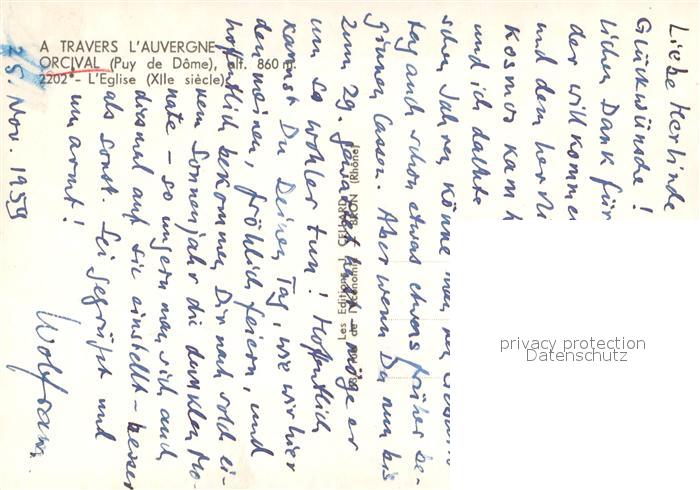 A TRAVERS L'AUVERGNE
ORCIVAL (Puy de Dôme), alt. 860 m.
2202 - L'Eglise (XIIe siècle)
Les Editions J. CELLARD
BRON (Rhône)
25. Nov. 1959
Liebe Herlinde
Glückwünsche!
lichen Dank für
der willkomme
und dem herzl
Kosmos kam h
und ich dachte
schen Jahren könne man den
tag auch schon etwas etwas früher be-
ginnen lassen. Aber wenn Du nun bis
zum 29. gewartet hast - möge er
um so wohler tun! Hoffentlich
kannst Du Deinen Tag, wie wir hier
den meinen, fröhlich feiern, und
hoffentlich bekommen Dir nach solch ei-
nem Sonnenjahr die dunklen Mo-
nate - so ungern man sich auch
diesmal auf sie einstellt - besser
als sonst. Sei gegrüßt und
umarmt!
Wolfram.
privacy protection
Datenschutz